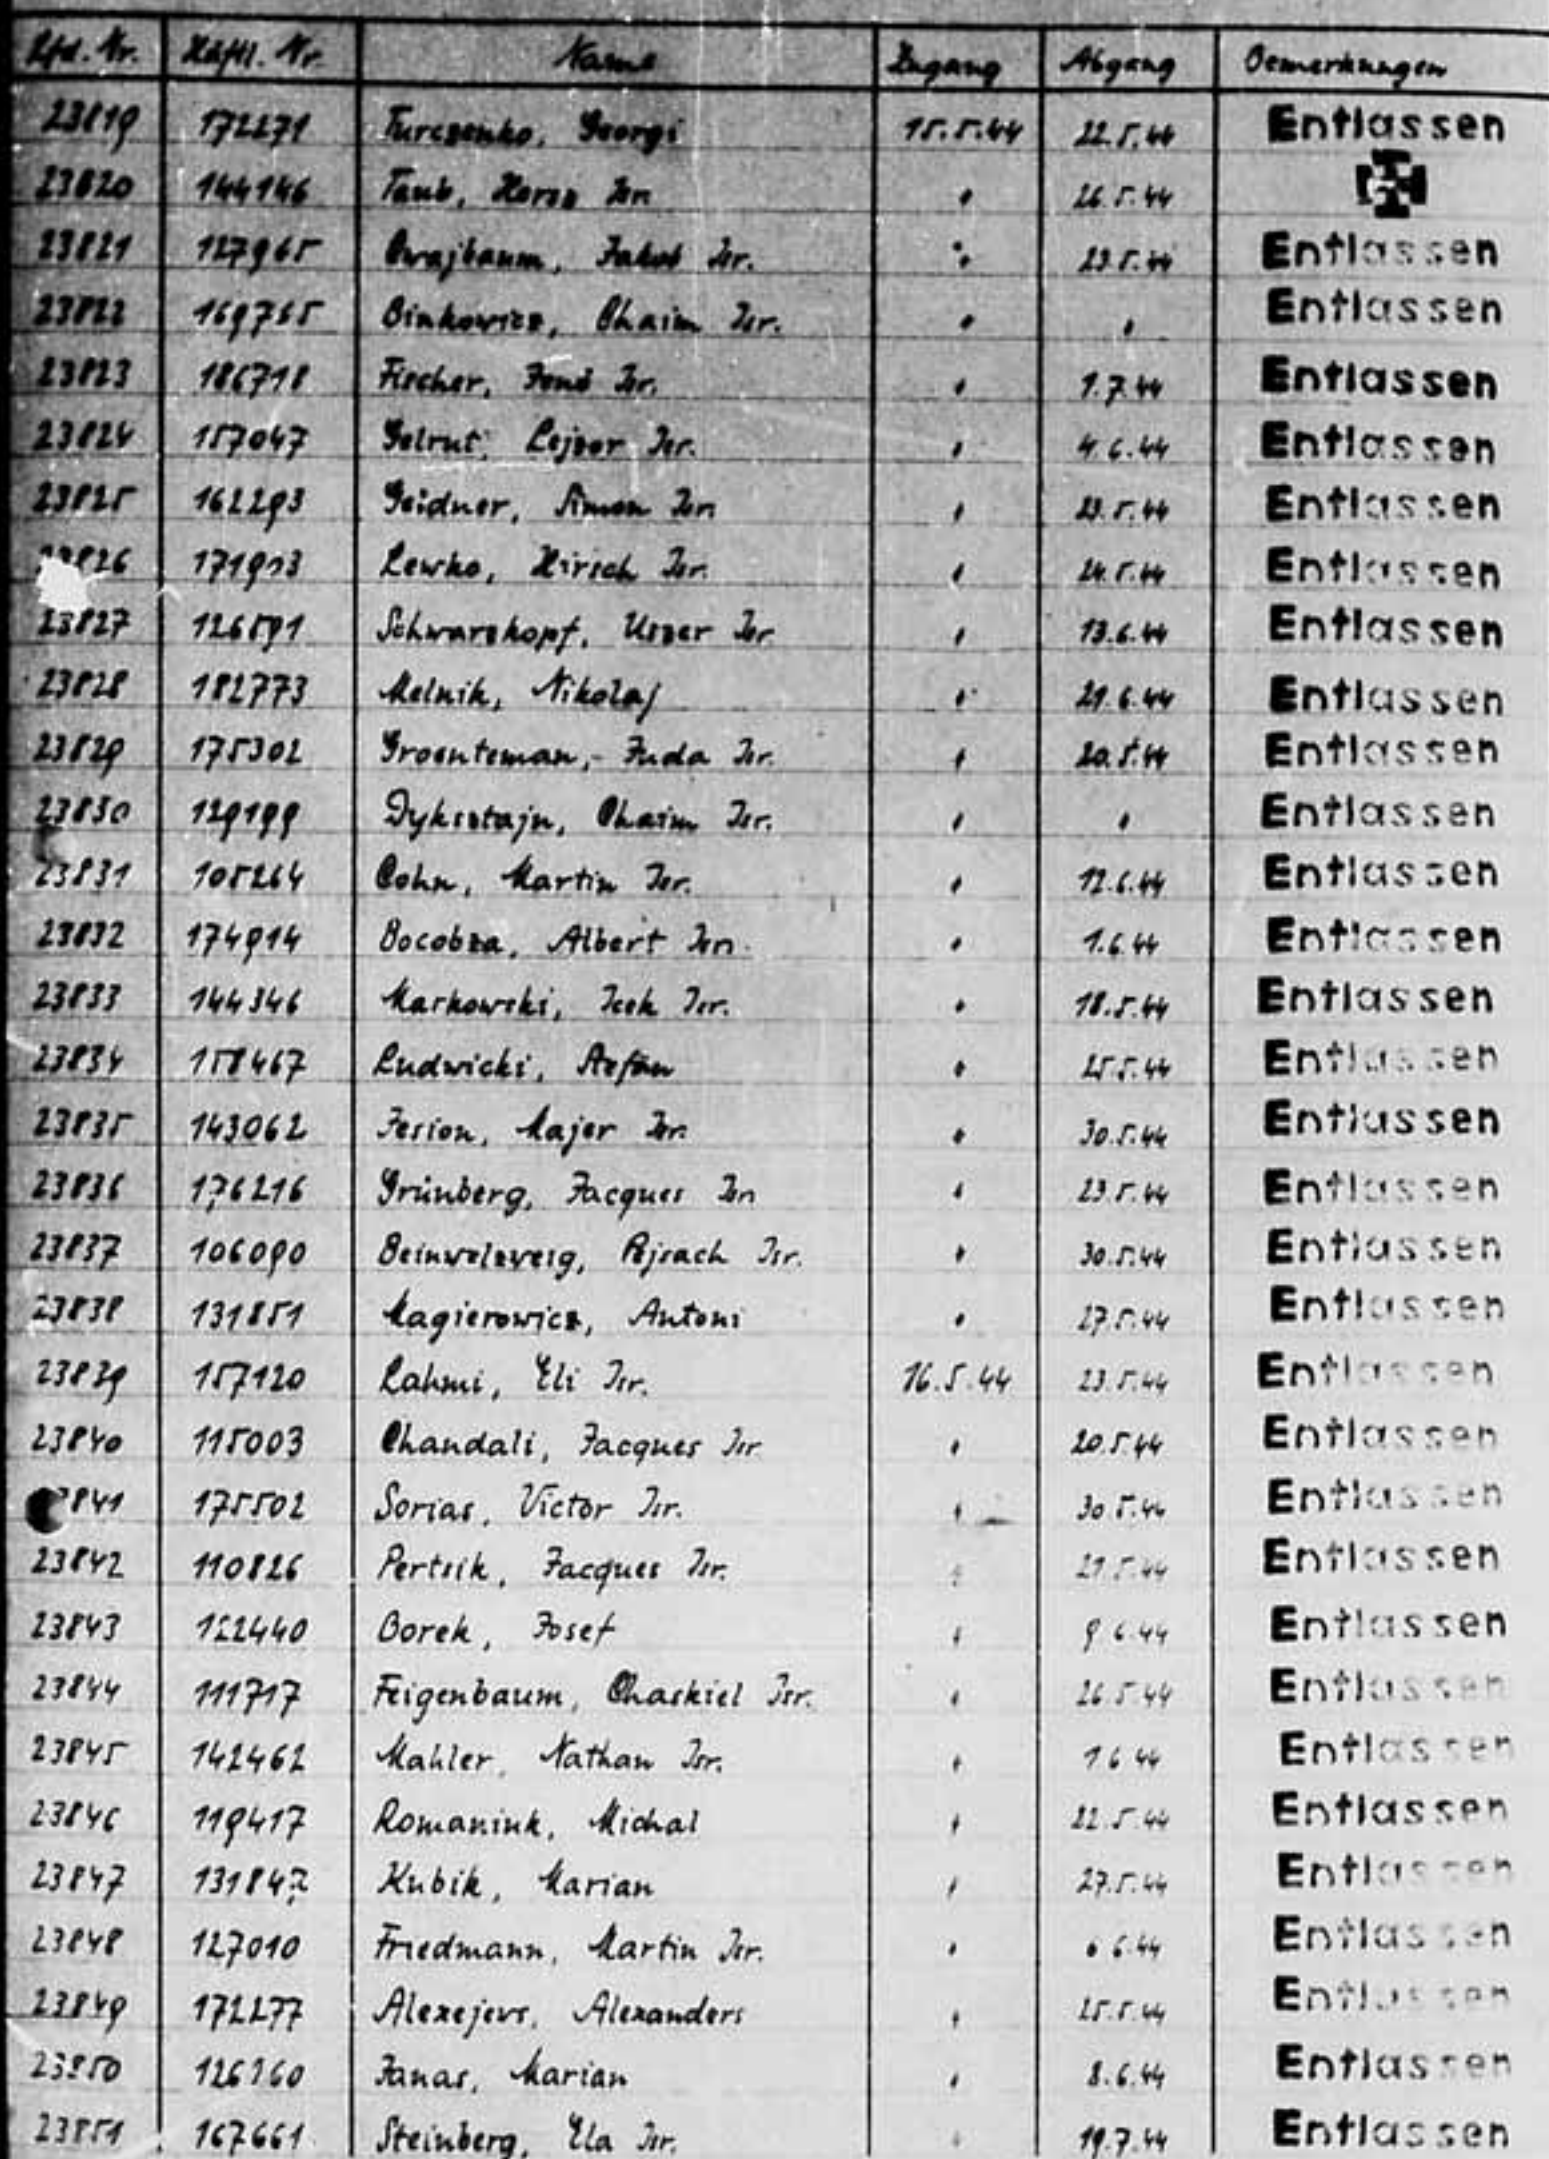 Lfd. Nr. Häftl. Nr. Name Zugang Abgang Bemerkungen
23819 172271 Turczenko, Georgi 15.5.44 22.5.44 Entlassen
23820 144146 Taub, Hersz Isr. " 26.5.44
23821 127965 Cwajbaum, Jakob Isr. " 23.5.44 Entlassen
23822 169765 Binkowicz, Chaim Isr. " " Entlassen
23823 186718 Fischer, Isr. " 1.7.44 Entlassen
23824 157047 Gelrut, Lejzor Isr. " 4.6.44 Entlassen
23825 162293 Geidner, Simon Isr. " 23.5.44 Entlassen
23826 171913 Lewko, Hirsch Isr. " 24.5.44 Entlassen
23827 126591 Schwarzkopf, Uszer Isr. " 13.6.44 Entlassen
23828 182773 Melnik, Nikolaj " 21.6.44 Entlassen
23829 175302 Groenteman, Juda Isr. " 20.5.44 Entlassen
23830 129199 Dyksztajn, Chaim Isr. " " Entlassen
23831 105264 Cohn, Martin Isr. " 12.6.44 Entlassen
23832 174914 Bocobza, Albert Isr. " 1.6.44 Entlassen
23833 144346 Markowski, Icek Isr. " 18.5.44 Entlassen
23834 158467 Ludwicki, Stefan " 25.5.44 Entlassen
23835 143062 Jesion, Majer Isr. " 30.5.44 Entlassen
23836 176216 Grünberg, Jacques Isr. " 23.5.44 Entlassen
23837 106090 Beinwelzweig, Pejsach Isr. " 30.5.44 Entlassen
23838 131851 Magierowicz, Antoni " 27.5.44 Entlassen
23839 157120 Lahmi, Eli Isr. 16.5.44 23.5.44 Entlassen
23840 115003 Chandali, Jacques Isr. " 20.5.44 Entlassen
23841 175502 Sorias, Victor Isr. " 30.5.44 Entlassen
23842 110826 Pertsik, Jacques Isr. " 21.5.44 Entlassen
23843 122440 Borek, Josef " 9.6.44 Entlassen
23844 111717 Feigenbaum, Chaskiel Isr. " 26.5.44 Entlassen
23845 142462 Mahler, Nathan Isr. " 1.6.44 Entlassen
23846 119417 Romaniuk, Michal " 22.5.44 Entlassen
23847 131847 Kubik, Marian " 27.5.44 Entlassen
23848 127010 Friedmann, Martin Isr. " 6.6.44 Entlassen
23849 172277 Alexejevs, Alexanders " 25.5.44 Entlassen
23850 126760 Janas, Marian " 8.6.44 Entlassen
23851 167661 Steinberg, Ela Isr. " 19.7.44 Entlassen